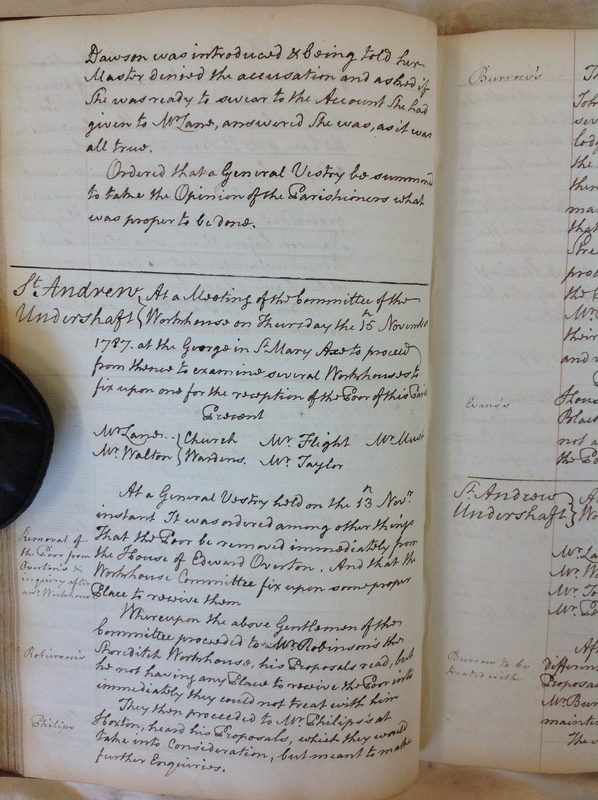 Dawson was introduced & being told her
Master denied the accusation and asked if
She was ready to swear to the Account She had
given to Mr. Lane, answered She was, as it was
all true.
Ordered that a General Vestry be summond
to take the Opinion of the Parishioners what
was proper to be done.
St. Andrew
Undershaft
At a Meeting of the Committee of the
Workhouse on Thursday the 15th Novembr
1787. at the George in St. Mary Axe to proceed
from thence to examine several Workhouses to
fix upon one for the reception of the Poor of this Parish
Present
Mr. Lane Church Mr. Flight
Mr. Walton Wardens. Mr. Taylor
At a General Vestry held on the 13th Novr.
instant It was ordered among other things
That the Poor be removed immediately from
the House of Edward Overton. And that the
Workhouse Committee fix upon some proper
Place to receive them
Removal of
the Poor from
Overton's &
inquiry after
anr. Workhouse
Whereupon the above Gentlemen of the
Committee proceeded to Mr. Robinson's the
Shoreditch Workhouse, his Proposals read, but
he not having any Place to receive the Poor into
immediately they could not treat with him
Robinson's
They then proceeded to Mr. Philips's at
Hoxton, heard his Proposals, which they would
take into Consideration, but meant to make
further Enquiries.
Philips
Burrow's
Evans's
House
not a
the Po
St. Andrew
Undershaft
Mr. La
Mr. W
Mr. To
Burrow to be
treated with
differen
Proposa
Mr. Bur
mainte